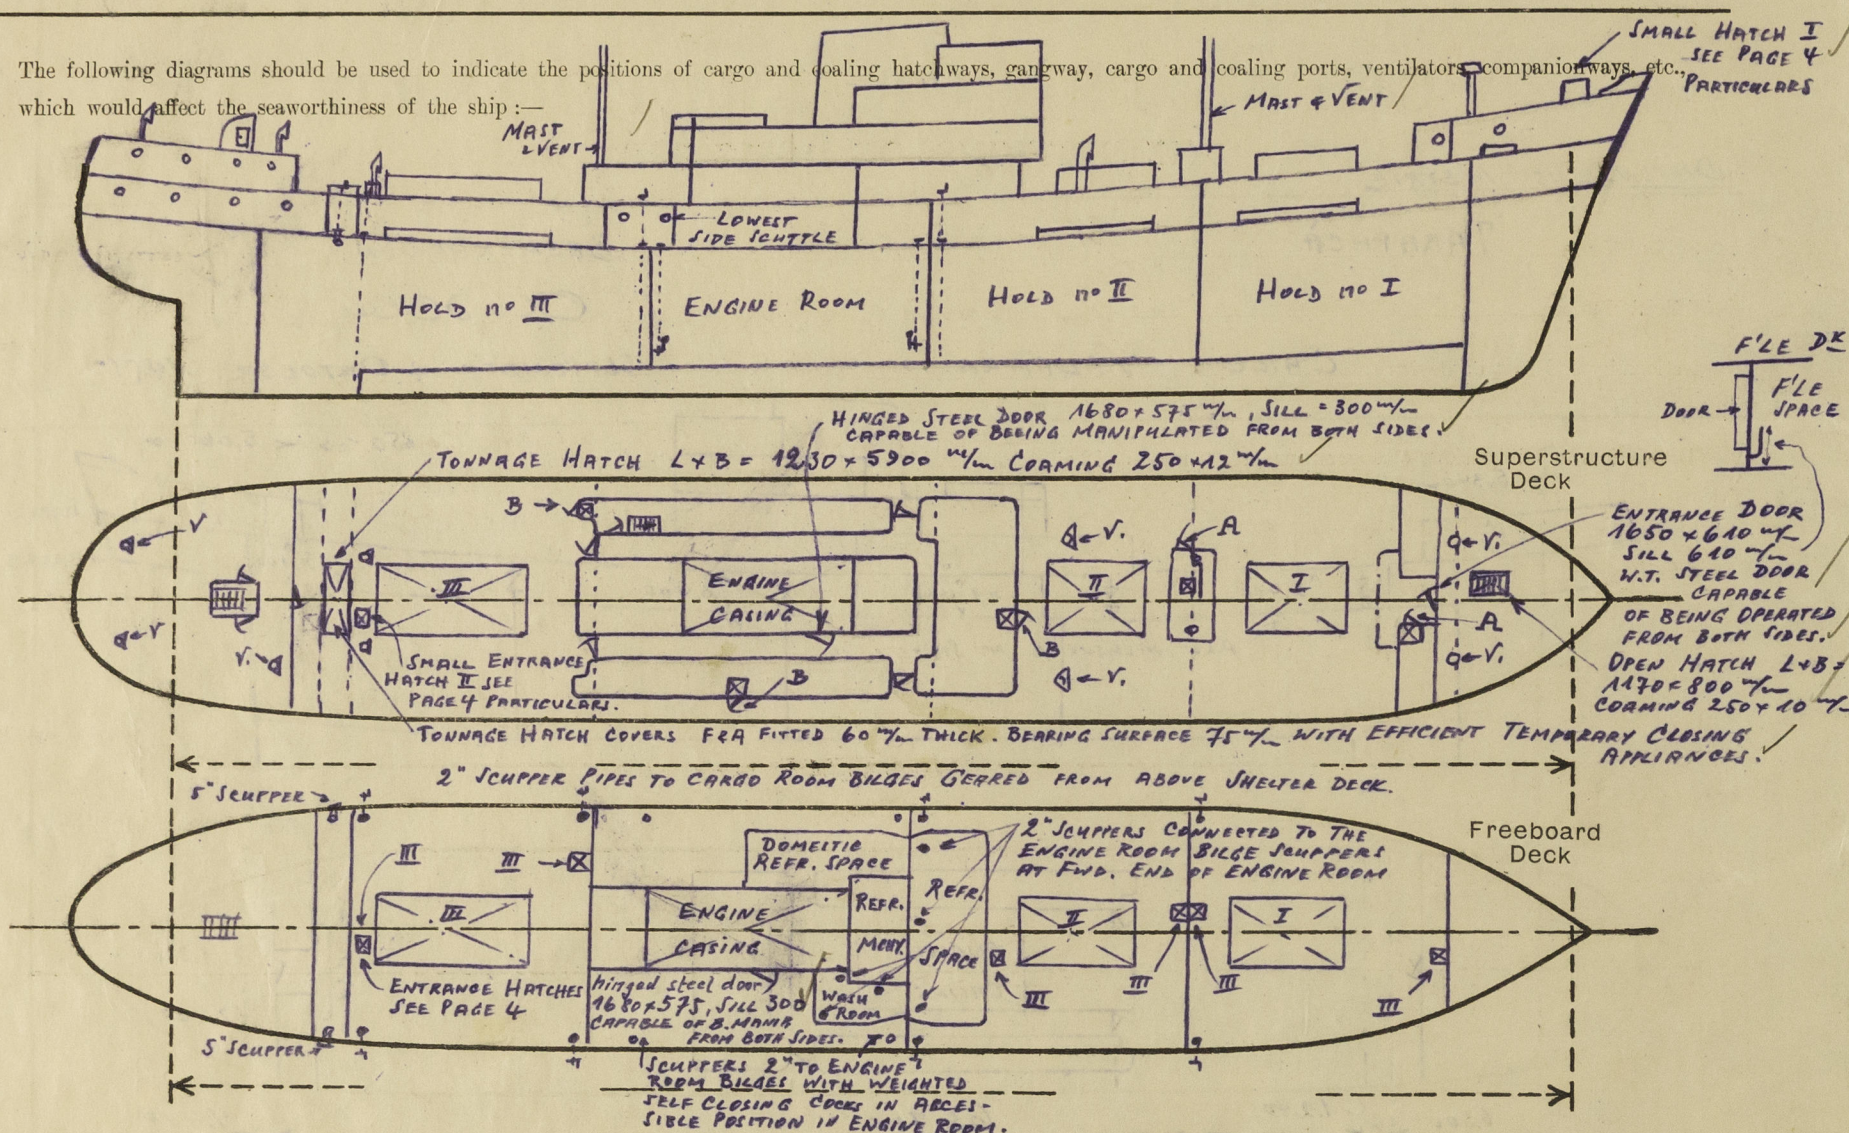 The following diagrams should be used to indicate the positions of cargo and coaling hatchways, gangway, cargo and coaling ports, ventilators, companionways, etc.,
which would affect the seaworthiness of the ship :—
SMALL HATCH I
SEE PAGE 4
PARTICULARS
MAST
& VENT
MAST & VENT
LOWEST
SIDE SCUTTLE
HOLD no III
ENGINE ROOM
HOLD no II
HOLD no I
F'LE DK
DOOR
F'LE
SPACE
HINGED STEEL DOOR 1680 × 575 m/m, SILL = 300 m/m
CAPABLE OF BEEING MANIPULATED FROM BOTH SIDES.
TONNAGE HATCH L × B = 1230 × 5900 m/m COAMING 250 × 12 m/m
Superstructure
Deck
ENTRANCE DOOR
1650 × 610 m/m
SILL 610 m/m
W.T. STEEL DOOR
CAPABLE
OF BEING OPERATED
FROM BOTH SIDES.
V
B
V.
A
V.
III
ENGINE
CASING
II
I
V
V.
B
A
V.
SMALL ENTRANCE
HATCH II SEE
PAGE 4 PARTICULARS.
B
V.
OPEN HATCH L × B =
1170 × 800 m/m
COAMING 250 × 10 m/m
TONNAGE HATCH COVERS F&A FITTED 60 m/m THICK. BEARING SURFACE 75 m/m WITH EFFICIENT TEMPORARY CLOSING
APPLIANCES.
2" SCUPPER PIPES TO CARGO ROOM BILGES GEARED FROM ABOVE SHELTER DECK.
5" SCUPPER
Freeboard
Deck
III
III
DOMEITIC
REFR. SPACE
2" SCUPPERS CONNECTED TO THE
ENGINE ROOM BILGE SCUPPERS
AT FWD. END OF ENGINE ROOM
III
ENGINE
CASING
REFR.
MCHY.
REFR.
SPACE
II
I
ENTRANCE HATCHES
SEE PAGE 4
hinged steel door
1680 × 575, SILL 300
CAPABLE OF B. MANIP.
FROM BOTH SIDES.
WASH
ROOM
III
III
III
III
5" SCUPPER
SCUPPERS 2" TO ENGINE
ROOM BILGES WITH WEIGHTED
SELF CLOSING COCKS IN ACCES-
SIBLE POSITION IN ENGINE ROOM.